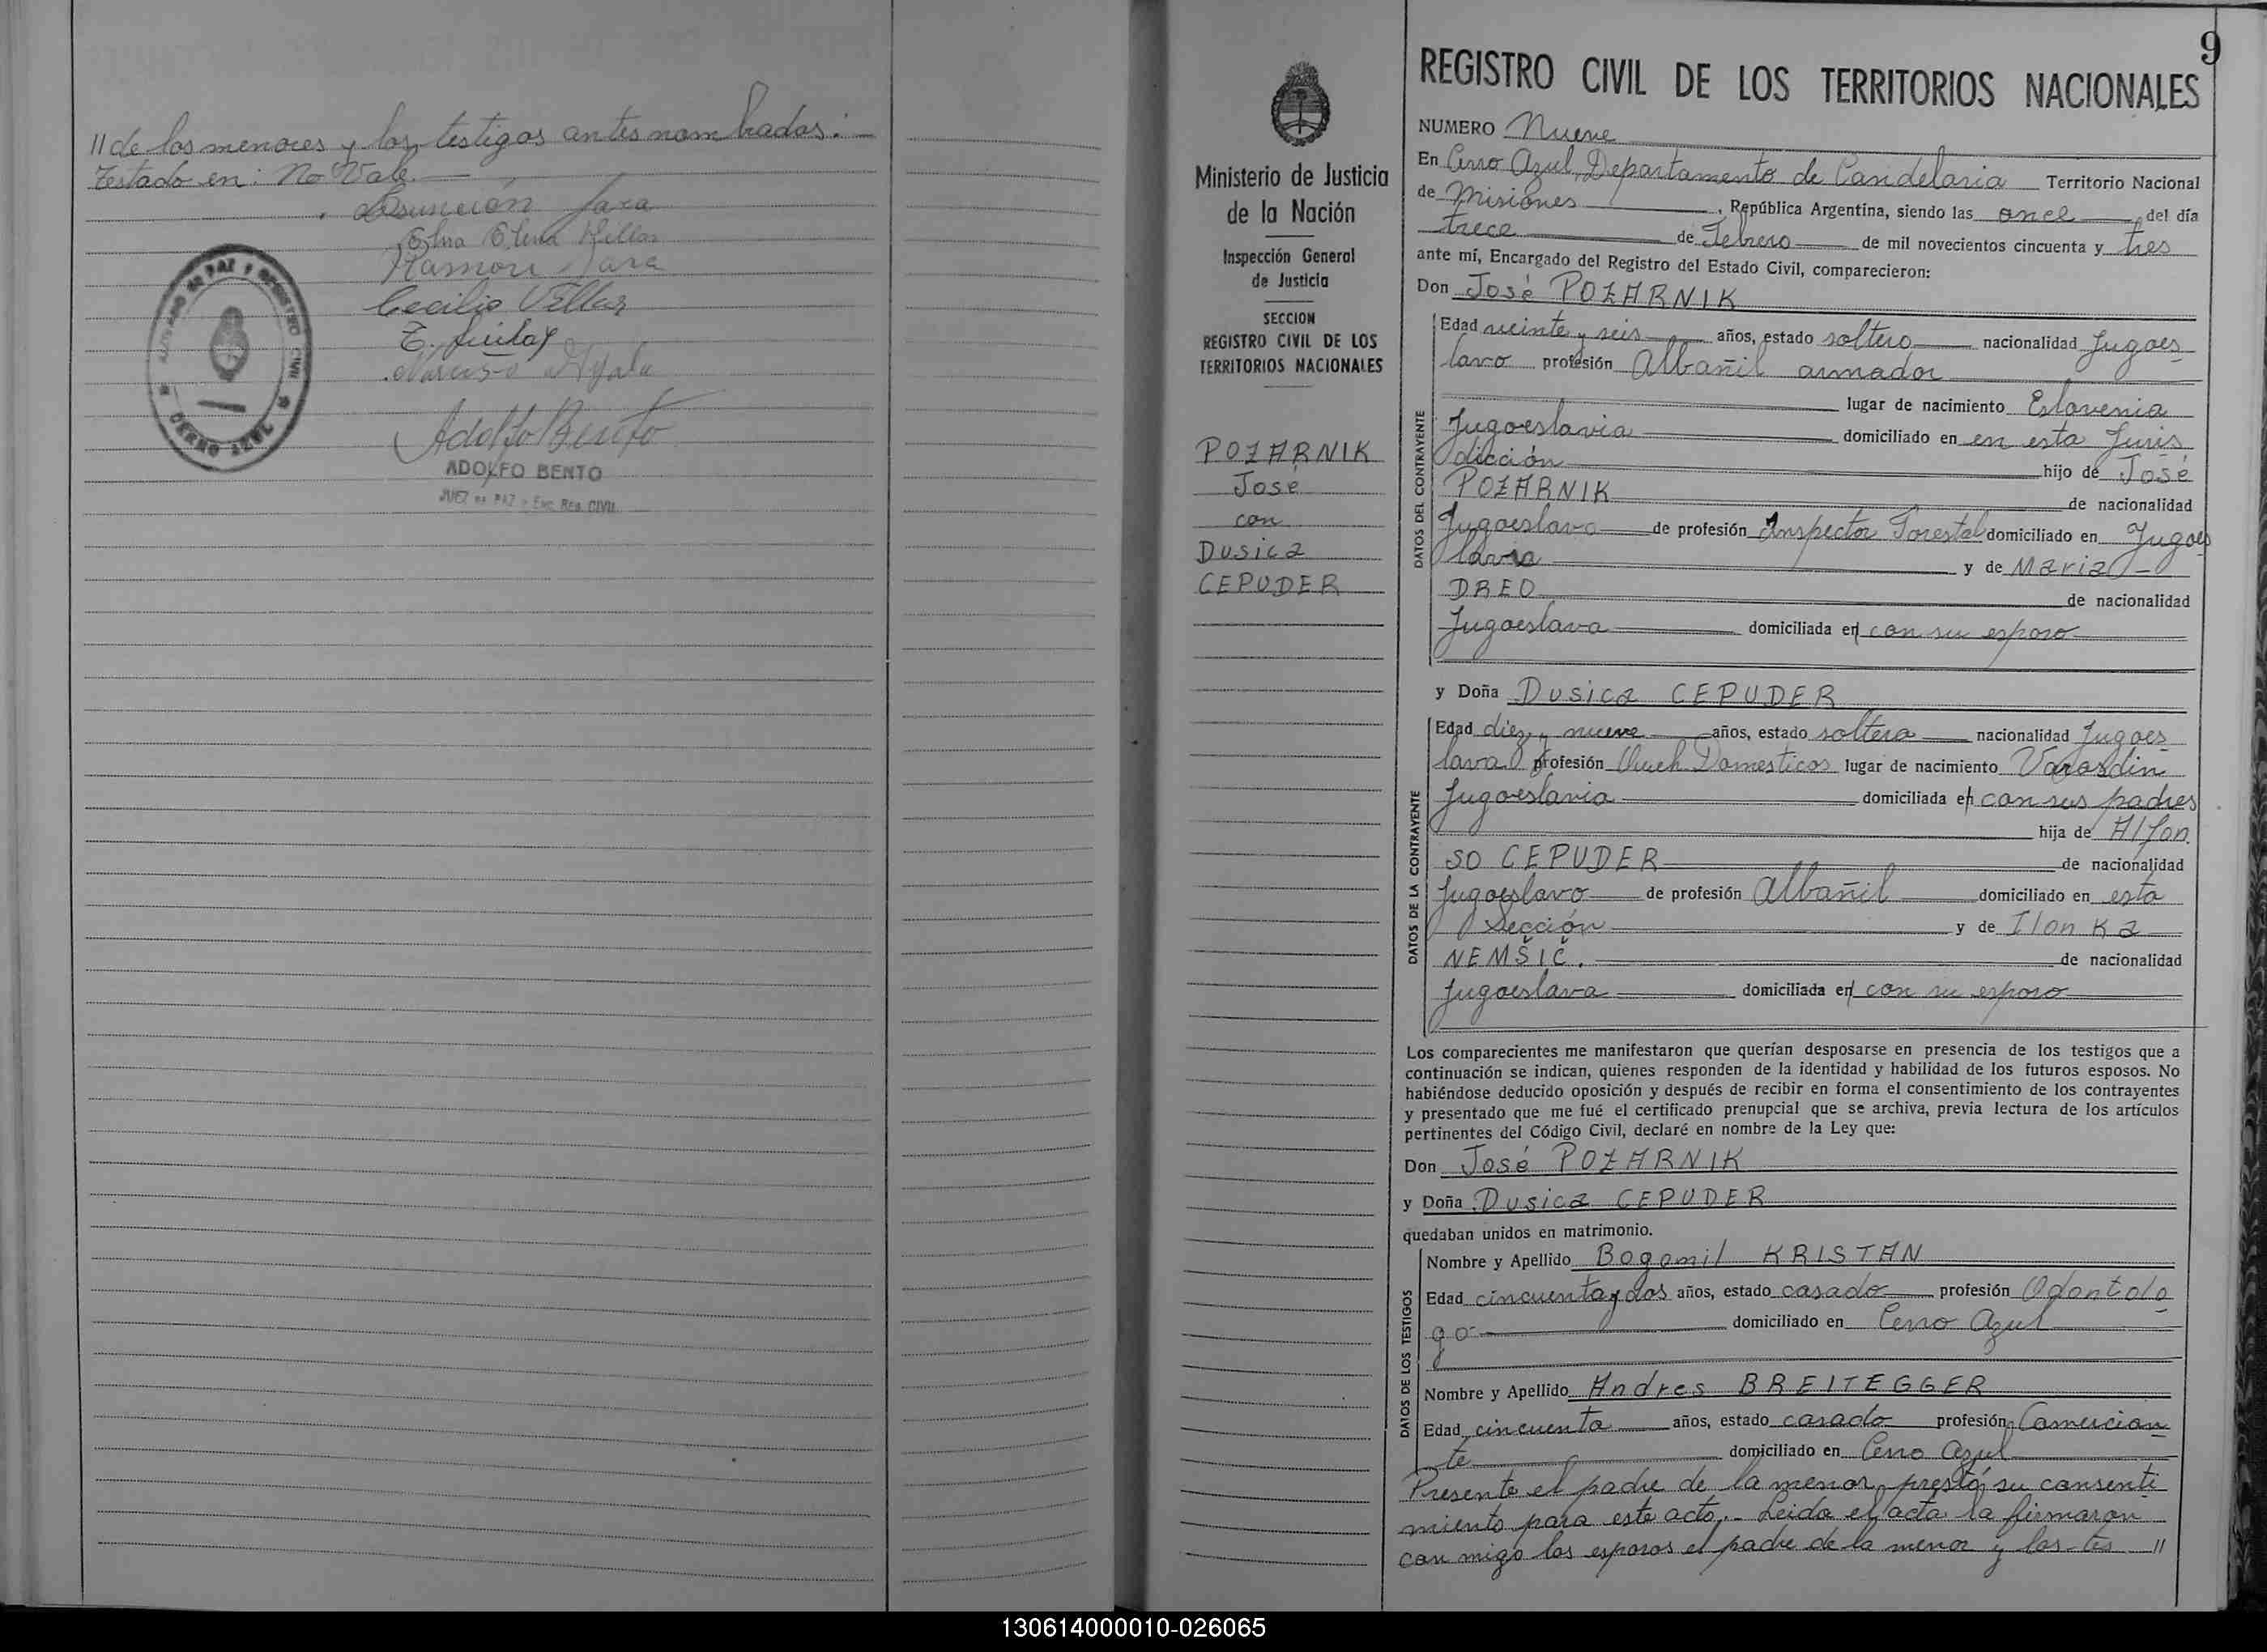 // de los menores y los testigos antes nombrados.-
Testado en: No Vale.
Asunción Jara
Elena
Ramon Jara
Cecilio
Adolfo Bento
ADOLFO BENTO
JUEZ de PAZ y Enc. Reg. CIVIL
JUZGADO de PAZ Y REGISTRO CIVIL
CERRO AZUL
9
Ministerio de Justicia
de la Nación
Inspección General
de Justicia
SECCION
REGISTRO CIVIL DE LOS
TERRITORIOS NACIONALES
POZARNIK
José
con
Dusica
CEPUDER
REGISTRO CIVIL DE LOS TERRITORIOS NACIONALES
NUMERO Nueve
En Cerro Azul, Departamento de Candelaria Territorio Nacional
de Misiones, República Argentina, siendo las once del día
trece de Febrero de mil novecientos cincuenta y tres
ante mí, Encargado del Registro del Estado Civil, comparecieron:
Don José POZARNIK
DATOS DEL CONTRAYENTE
Edad veinte y seis años, estado soltero nacionalidad Jugoes
lavo profesión Albañil armador
lugar de nacimiento Eslovenia
Jugoeslavia domiciliado en en esta Juris
dicción hijo de José
POZARNIK de nacionalidad
Jugoeslavo de profesión Inspector Forestal domiciliado en Jugoes
lavia y de Maria
DREO de nacionalidad
Jugoeslava domiciliada en con su esposo
y Doña Dusica CEPUDER
DATOS DE LA CONTRAYENTE
Edad diez y nueve años, estado soltera nacionalidad Jugoes
lava profesión Queh. Domesticos lugar de nacimiento Varasdin
Jugoeslavia domiciliada en con sus padres
hija de Alfon
so CEPUDER de nacionalidad
Jugoeslavo de profesión Albañil domiciliado en esta
Sección y de Ilonka
NEMŠIČ. de nacionalidad
Jugoeslava domiciliada en con su esposo
Los comparecientes me manifestaron que querían desposarse en presencia de los testigos que a
continuación se indican, quienes responden de la identidad y habilidad de los futuros esposos. No
habiéndose deducido oposición y después de recibir en forma el consentimiento de los contrayentes
y presentado que me fué el certificado prenupcial que se archiva, previa lectura de los artículos
pertinentes del Código Civil, declaré en nombre de la Ley que:
Don José POZARNIK
y Doña Dusica CEPUDER
quedaban unidos en matrimonio.
DATOS DE LOS TESTIGOS
Nombre y Apellido Bogomil KRISTAN
Edad cincuenta y dos años, estado casado profesión Odontolo
go domiciliado en Cerro Azul
Nombre y Apellido Andres BREITEGGER
Edad cincuenta años, estado casado profesión Comercian
te domiciliado en Cerro Azul
Presente el padre de la menor prestó su consenti
miento para este acto.- Leida el acta la firmaron
con migo los esposos el padre de la menor y los tes //
130614000010-026065